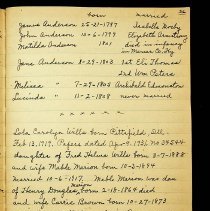 26
born married
James Anderson 25-21-1797 Isabella Mosby
John Anderson 12-6-1799 Elizabeth Armstrong
Matilda Anderson 1801 died in infancy
in Mercer Co. Ky
Jane Anderson 8-29-1803 1st Eli Thomas
2nd Wm Peters
Melissa " 7-29-1805 Archibald Edmonston
Lucinda " 12-2-1808 never married
x x x x x x
Lola Carolyn Wills born Pittsfield, Ill.
Feb. 13, 1919. Papers dated Apr. 9, 1930, No 34544
daughter of Fred Helme Wills born 3-7-1888
and wife Mable Merion born 10-2-1894
married 10-6-1917. Mable Merion was dau
of Henry Douglas Merion born 2-18-1864 died
and wife Carrie Brawn born 10-27-1873